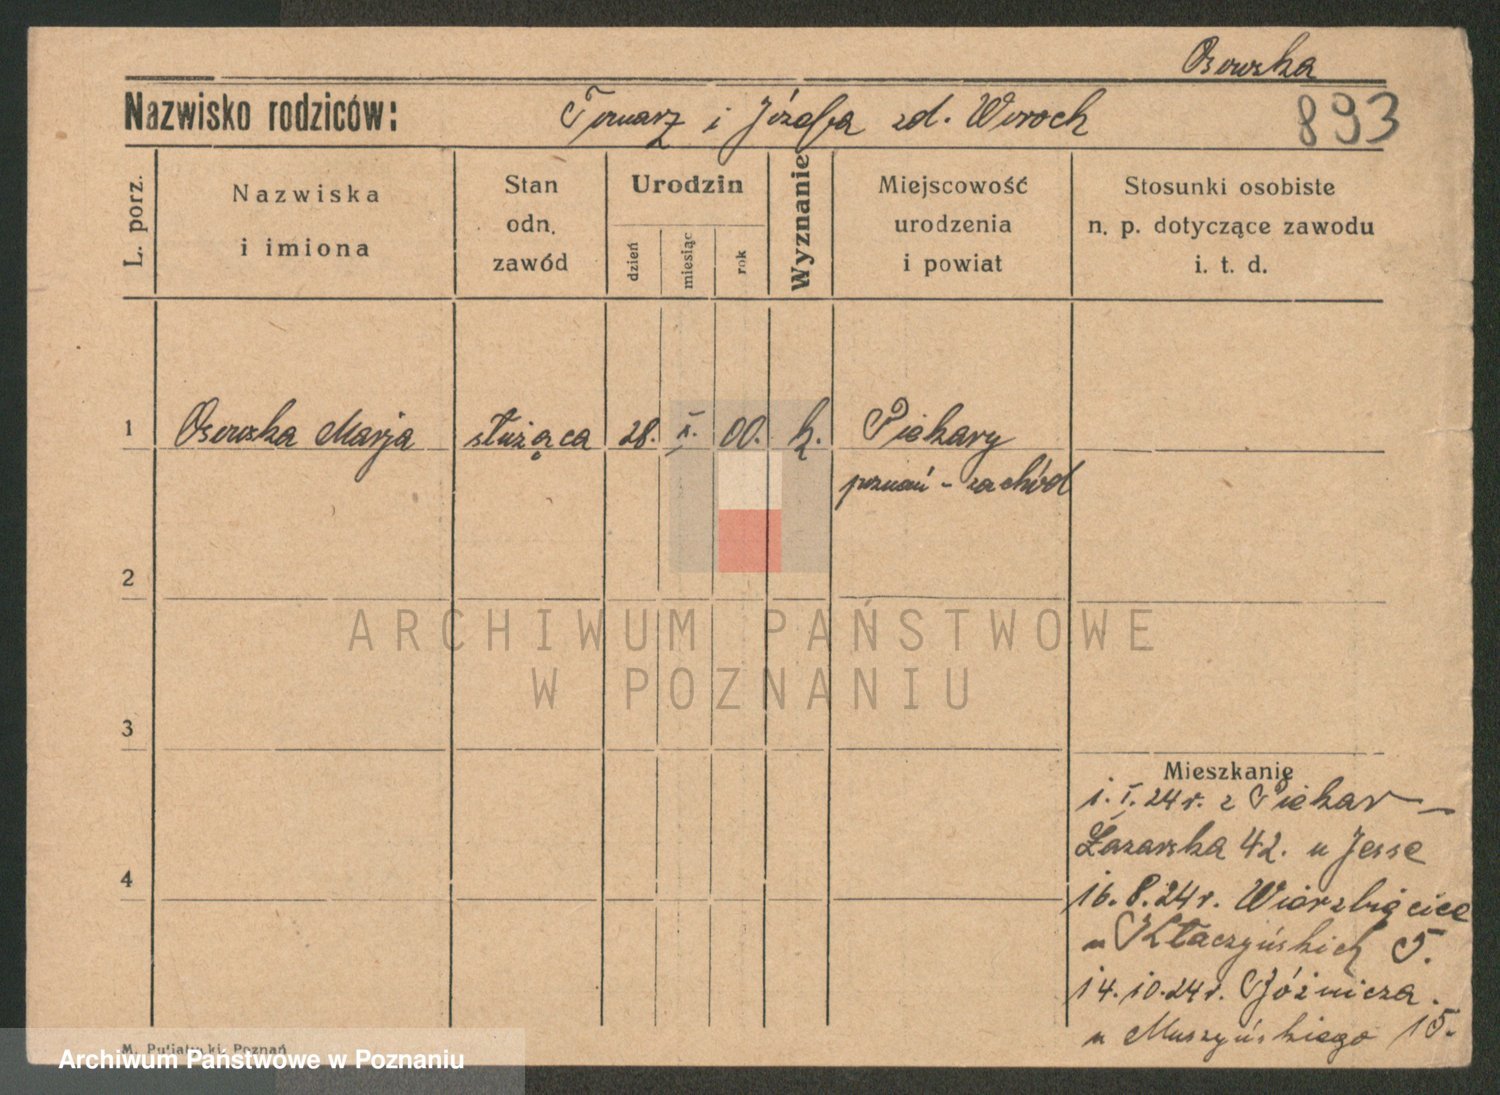 Osowska
Nazwisko rodziców: Tomasz i Józefa zd. Woroch 893
L. porz.
Nazwiska
i imiona
Stan
odn.
zawód
Urodzin
dzień
miesiąc
rok
Wyznanie
Miejscowość
urodzenia
i powiat
Stosunki osobiste
n. p. dotyczące zawodu
i. t. d.
1 Osowska Marja służąca 28. X. 00. k. Piekary
poznań - zachód
2
3
4
Mieszkanie
1. I. 24 r. z Piekar
Łazarska 42. u Jesse
16. 8. 24 r. Wierzbięcice
u Kłaczyńskich 5.
14. 10. 24 r. Różnicza.
u Muszyńskiego 15.
ARCHIWUM PAŃSTWOWE
W POZNANIU
M. Putiatycki, Poznań
Archiwum Państwowe w Poznaniu